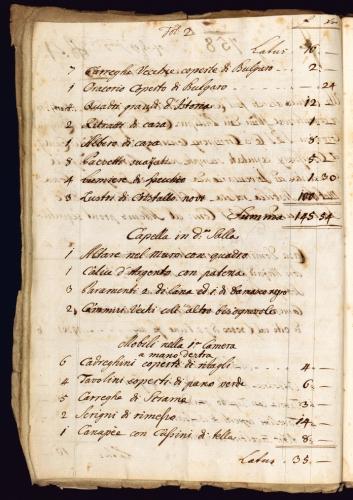 Fol. 2
Latus 16.
7 Carreghe Vecchie coperte di Bulgaro 2. —
1 Oratorio Coperto di Bulgaro — 24
Quadri grandi d'Istoria 12. —
2 Ritratti di casa 1. —
1 Albero di casa 8. —
8 5. —
4 Lumiere di specchio 1. 30
3 Lustri di Cristallo novi 100 —
Summa 145. 54
Capella in d.ª Salla
1 Altare nel Muro con quadro
1 Calice d'Argento con patena
3 Paramenti 2 di lana ed 1 di damasco
2 Cammisi Vechi coll' altro bisognevole
Mobili nella 1ª Camera
a mano destra
6 Cadreghini coperti di 4. —
4 Tavolini coperti di pano verde 6. —
5 Carreghe di Strame 3. —
2 Scrigni di rimesso 14. —
1 Canapèe con Cussini di tella 8. —
Latus 35. —